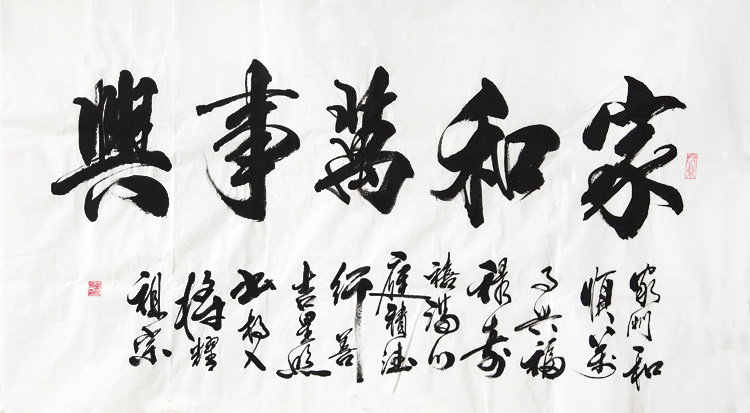 家和萬事興
家門和
順萬
事興福
禄壽
禧滿門
庭積德
行善
吉星照
人
耀
祖宗